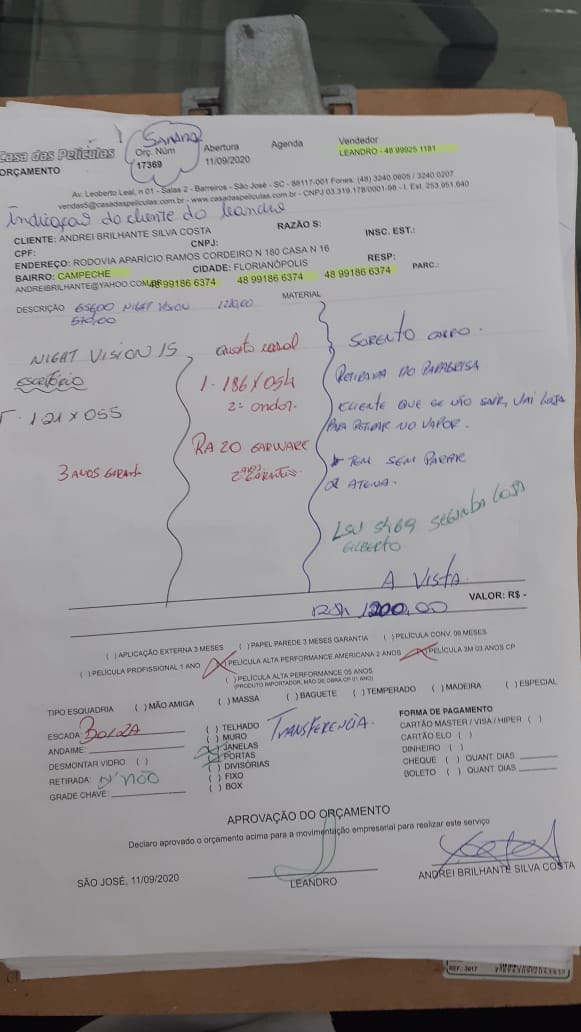 SANDRO
Casa das Películas
Orç. Núm
Abertura
Agenda
Vendedor
ORÇAMENTO
17369
11/09/2020
LEANDRO - 48 99925 1181
Av. Leoberto Leal, n 01 - Salas 2 - Barreiros - São José - SC - 88117-001 Fones: (48) 3240 0605 / 3240 0207
vendas5@casadaspeliculas.com.br - www.casadaspeliculas.com.br - CNPJ 03.319.178/0001-98 - I. Est. 253.951.640
Indicaçao do cliente do leandro
CLIENTE: ANDREI BRILHANTE SILVA COSTA
RAZÃO S:
CPF:
CNPJ:
INSC. EST.:
ENDEREÇO: RODOVIA APARÍCIO RAMOS CORDEIRO N 180 CASA N 16
BAIRRO: CAMPECHE
CIDADE: FLORIANÓPOLIS
RESP:
ANDREIBRILHANTE@YAHOO.COM
48 99186 6374
48 99186 6374
48 99186 6374
PARC.:
DESCRIÇÃO
NIGHT VISION
1220,00
MATERIAL
570,00
NIGHT VISION 15
ESCRITÓRIO
1.21 X 055
3 ANOS GARANTIA
quarto casal
1.186 X 054
2º andar.
RA 20 GARWARE
2 anos GARANTIA
SORENTO CARRO.
RETIRADA DO PARABRISA
CLIENTE QUE SE NÃO SAIR, VAI LOJA
PARA RETIRAR NO VAPOR.
TEM SEM PARAR
ATENA.
SEGUNDA LOJA
GILBERTO
A VISTA
1200,00
VALOR: R$ -
( ) APLICAÇÃO EXTERNA 3 MESES
( ) PAPEL PAREDE 3 MESES GARANTIA
( ) PELÍCULA CONV. 06 MESES
( ) PELÍCULA PROFISSIONAL 1 ANO
PELÍCULA ALTA PERFORMANCE AMERICANA 2 ANOS
PELÍCULA 3M 03 ANOS CP
( ) PELÍCULA ALTA PERFORMANCE 05 ANOS
(PRODUTO IMPORTADOR, MÃO DE OBRA CP 01 ANO)
TIPO ESQUADRIA
( ) MÃO AMIGA
( ) MASSA
( ) BAGUETE
( ) TEMPERADO
( ) MADEIRA
( ) ESPECIAL
ESCADA:
ANDAIME:
DESMONTAR VIDRO ( )
RETIRADA: NÃO
GRADE CHAVE:
( ) TELHADO
( ) MURO
JANELAS
PORTAS
( ) DIVISÓRIAS
( ) FIXO
( ) BOX
TRANSFERENCIA.
FORMA DE PAGAMENTO
CARTÃO MASTER / VISA / HIPER ( )
CARTÃO ELO ( )
DINHEIRO ( )
CHEQUE ( ) QUANT. DIAS
BOLETO ( ) QUANT. DIAS
APROVAÇÃO DO ORÇAMENTO
Declaro aprovado o orçamento acima para a movimentação empresarial para realizar este serviço
SÃO JOSÉ, 11/09/2020
LEANDRO
ANDREI BRILHANTE SILVA COSTA